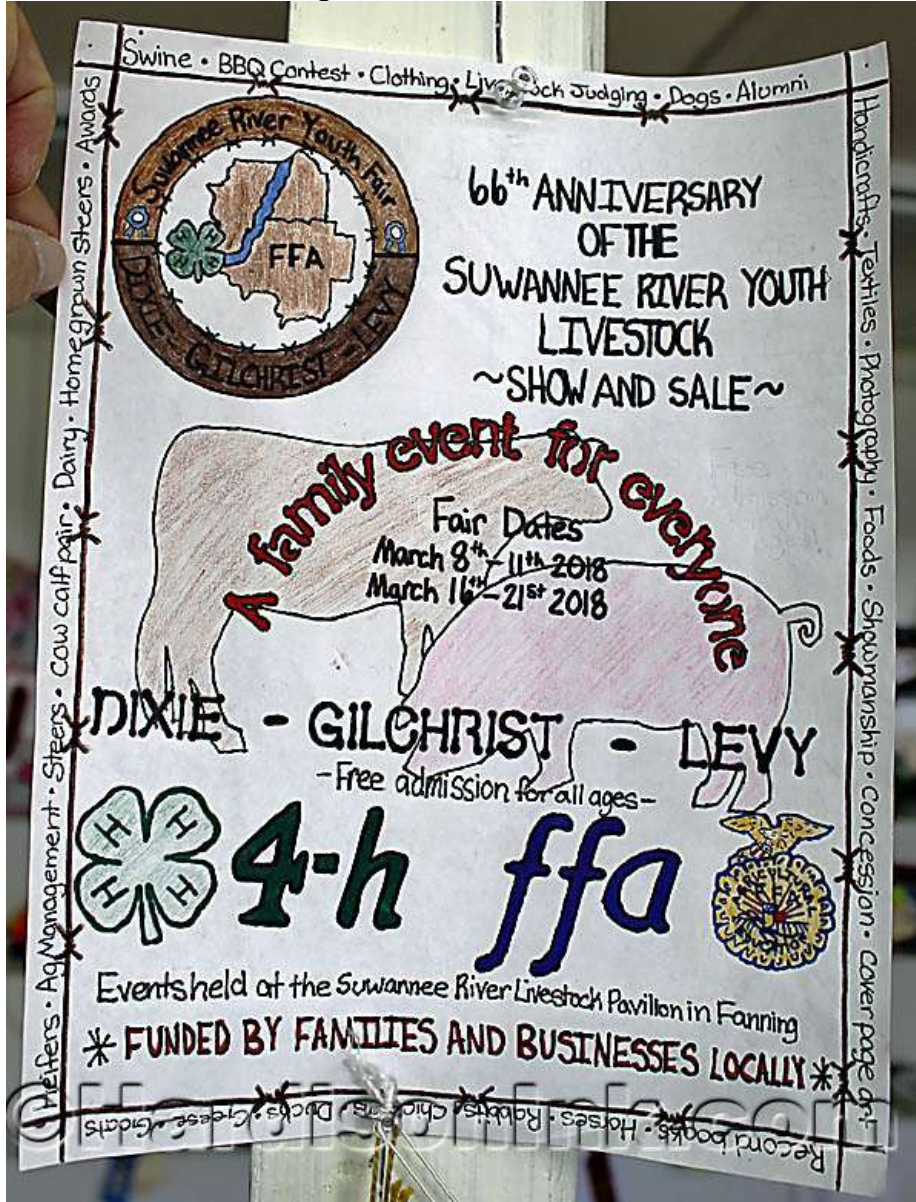 Swine • BBQ Contest • Clothing • Livestock Judging • Dogs • Alumni
Handicrafts • Textiles • Photography • Foods • Showmanship • Concession • Cover page art
Record books • Horses • Rabbits • Chickens • Ducks • Geese • Goats
Heifers • Ag Management • Steers • Cow calf pair • Dairy • Homegrown steers • Awards
Suwannee River Youth Fair
FFA
DIXIE - GILCHRIST - LEVY
66th ANNIVERSARY
OF THE
SUWANNEE RIVER YOUTH
LIVESTOCK
~SHOW AND SALE~
A family event for everyone
Fair Dates
March 8th - 11th 2018
March 16th - 21st 2018
DIXIE - GILCHRIST - LEVY
-Free admission for all ages-
H H H H
4-h
ffa
Events held at the Suwannee River Livestock Pavilion in Fanning
* FUNDED BY FAMILIES AND BUSINESSES LOCALLY *
©HardisonInk.com